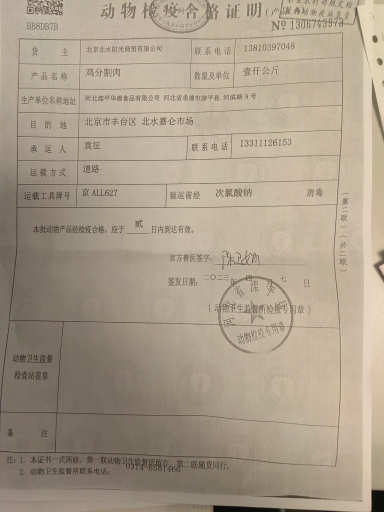 动物检疫合格证明
BB8DB7B
№ 1306743973
货 主 北京北水阳光商贸有限公司 联系电话 13810397048
产品名称 鸡分割肉 数量及单位 壹仟公斤
生产单位名称地址 河北滦平华都食品有限公司 河北省承德市滦平县 河滨路9号
目的地 北京市丰台区 北水嘉仑市场
承运人 袁征 联系电话 13311126153
运载方式 道路
运载工具牌号 京ALL627 装运前经 次氯酸钠 消毒
本批动物产品经检疫合格，应于 贰 日内到达有效。
官方兽医签字：
签发日期： 二〇二三年 四 月 七 日
（动物卫生监督所检疫专用章）
动物检疫专用章
动物卫生监督
检查站签章
备 注
（第二联）（共二联）
注：1. 本证书一式两联，第一联动物卫生监督所留存，第二联随货同行。
2. 动物卫生监督所联系电话：0314-8581466